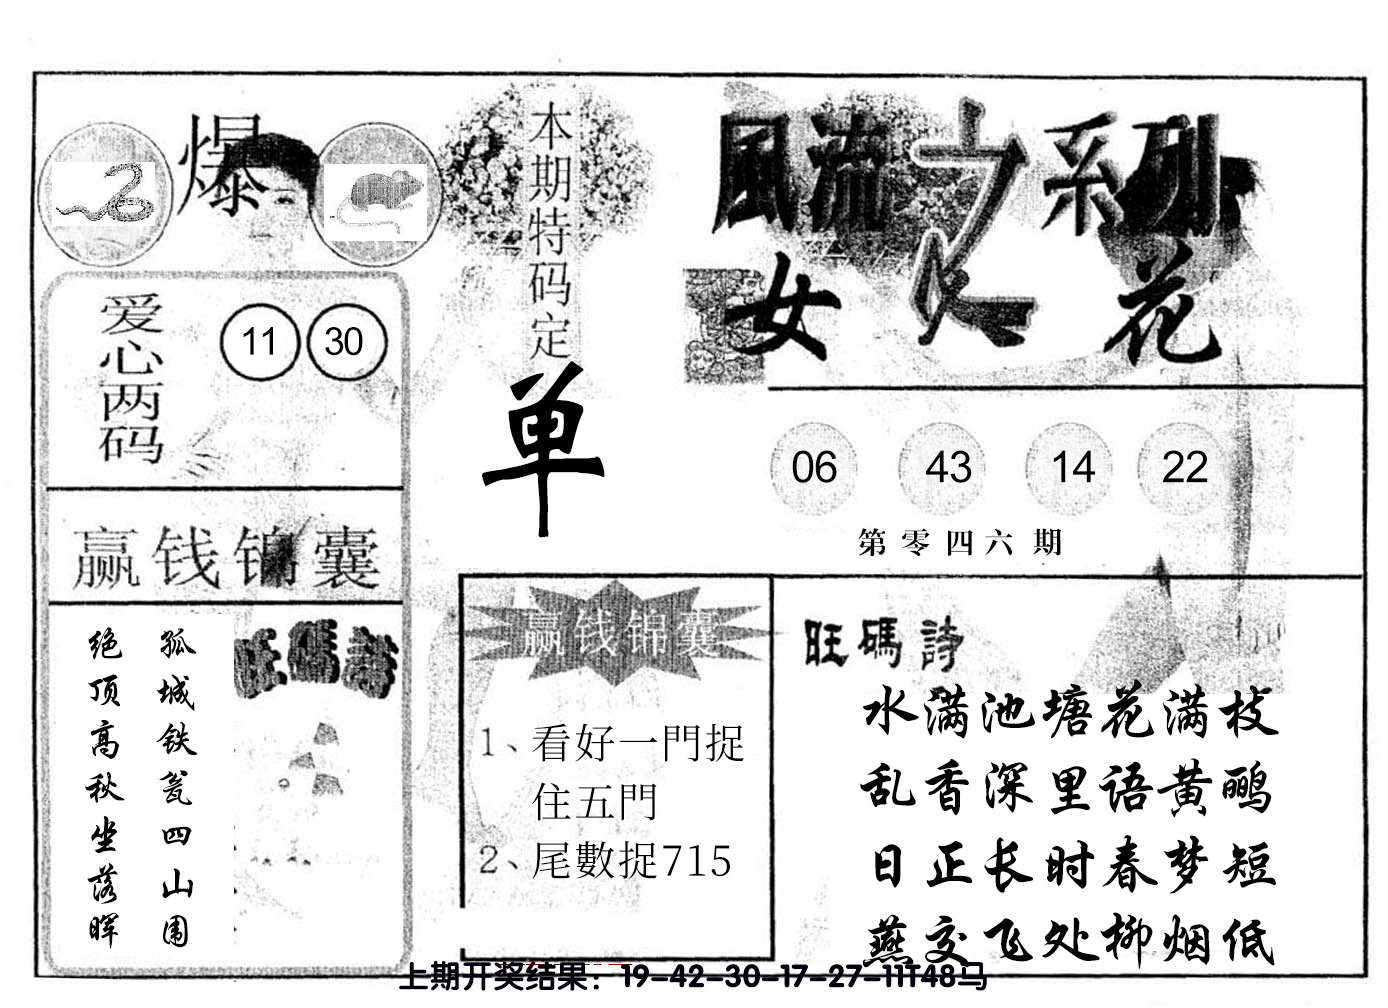 爆
爱心两码
11 30
赢钱锦囊
孤城铁瓮四山围
绝顶高秋坐落晖
旺碼詩
本期特码定
单
風流之系列
女人花
06 43 14 22
第零四六期
赢钱锦囊
1、看好一門捉
住五門
2、尾數捉715
旺碼詩
水满池塘花满枝
乱香深里语黄鹂
日正长时春梦短
燕交飞处柳烟低
上期开奖结果：19-42-30-17-27-11T48马